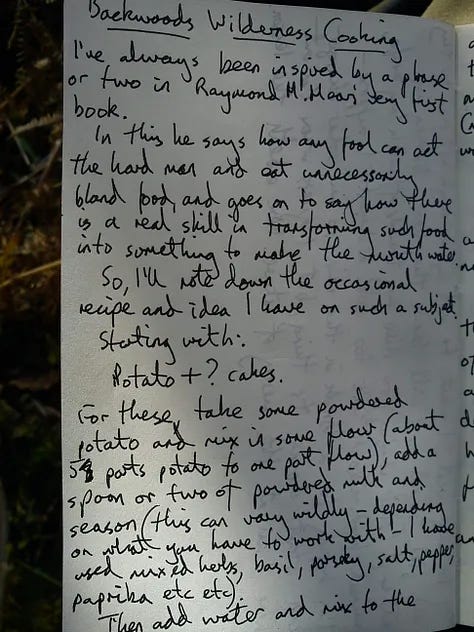 Backwoods Wilderness Cooking
I've always been inspired by a phrase
or two in Raymond M.Mears very first
book.
In this he says how any fool can act
the hard man and eat unnecessarily
bland food, and goes on to say how there
is a real skill in transforming such food
into something to make the mouth water.
So, I'll note down the occasional
recipe and idea I have on such a subject.
Starting with:.
Potato + ? cakes.
For these, take some powdered
potato and mix in some flour (about
5 parts potato to one part flour), add a
spoon or two of powdered milk and
season (this can vary wildly - depending
on what you have to work with - I have
used mixed herbs, basil, parsley, salt, pepper,
paprika etc etc).
Then add water and mix to the